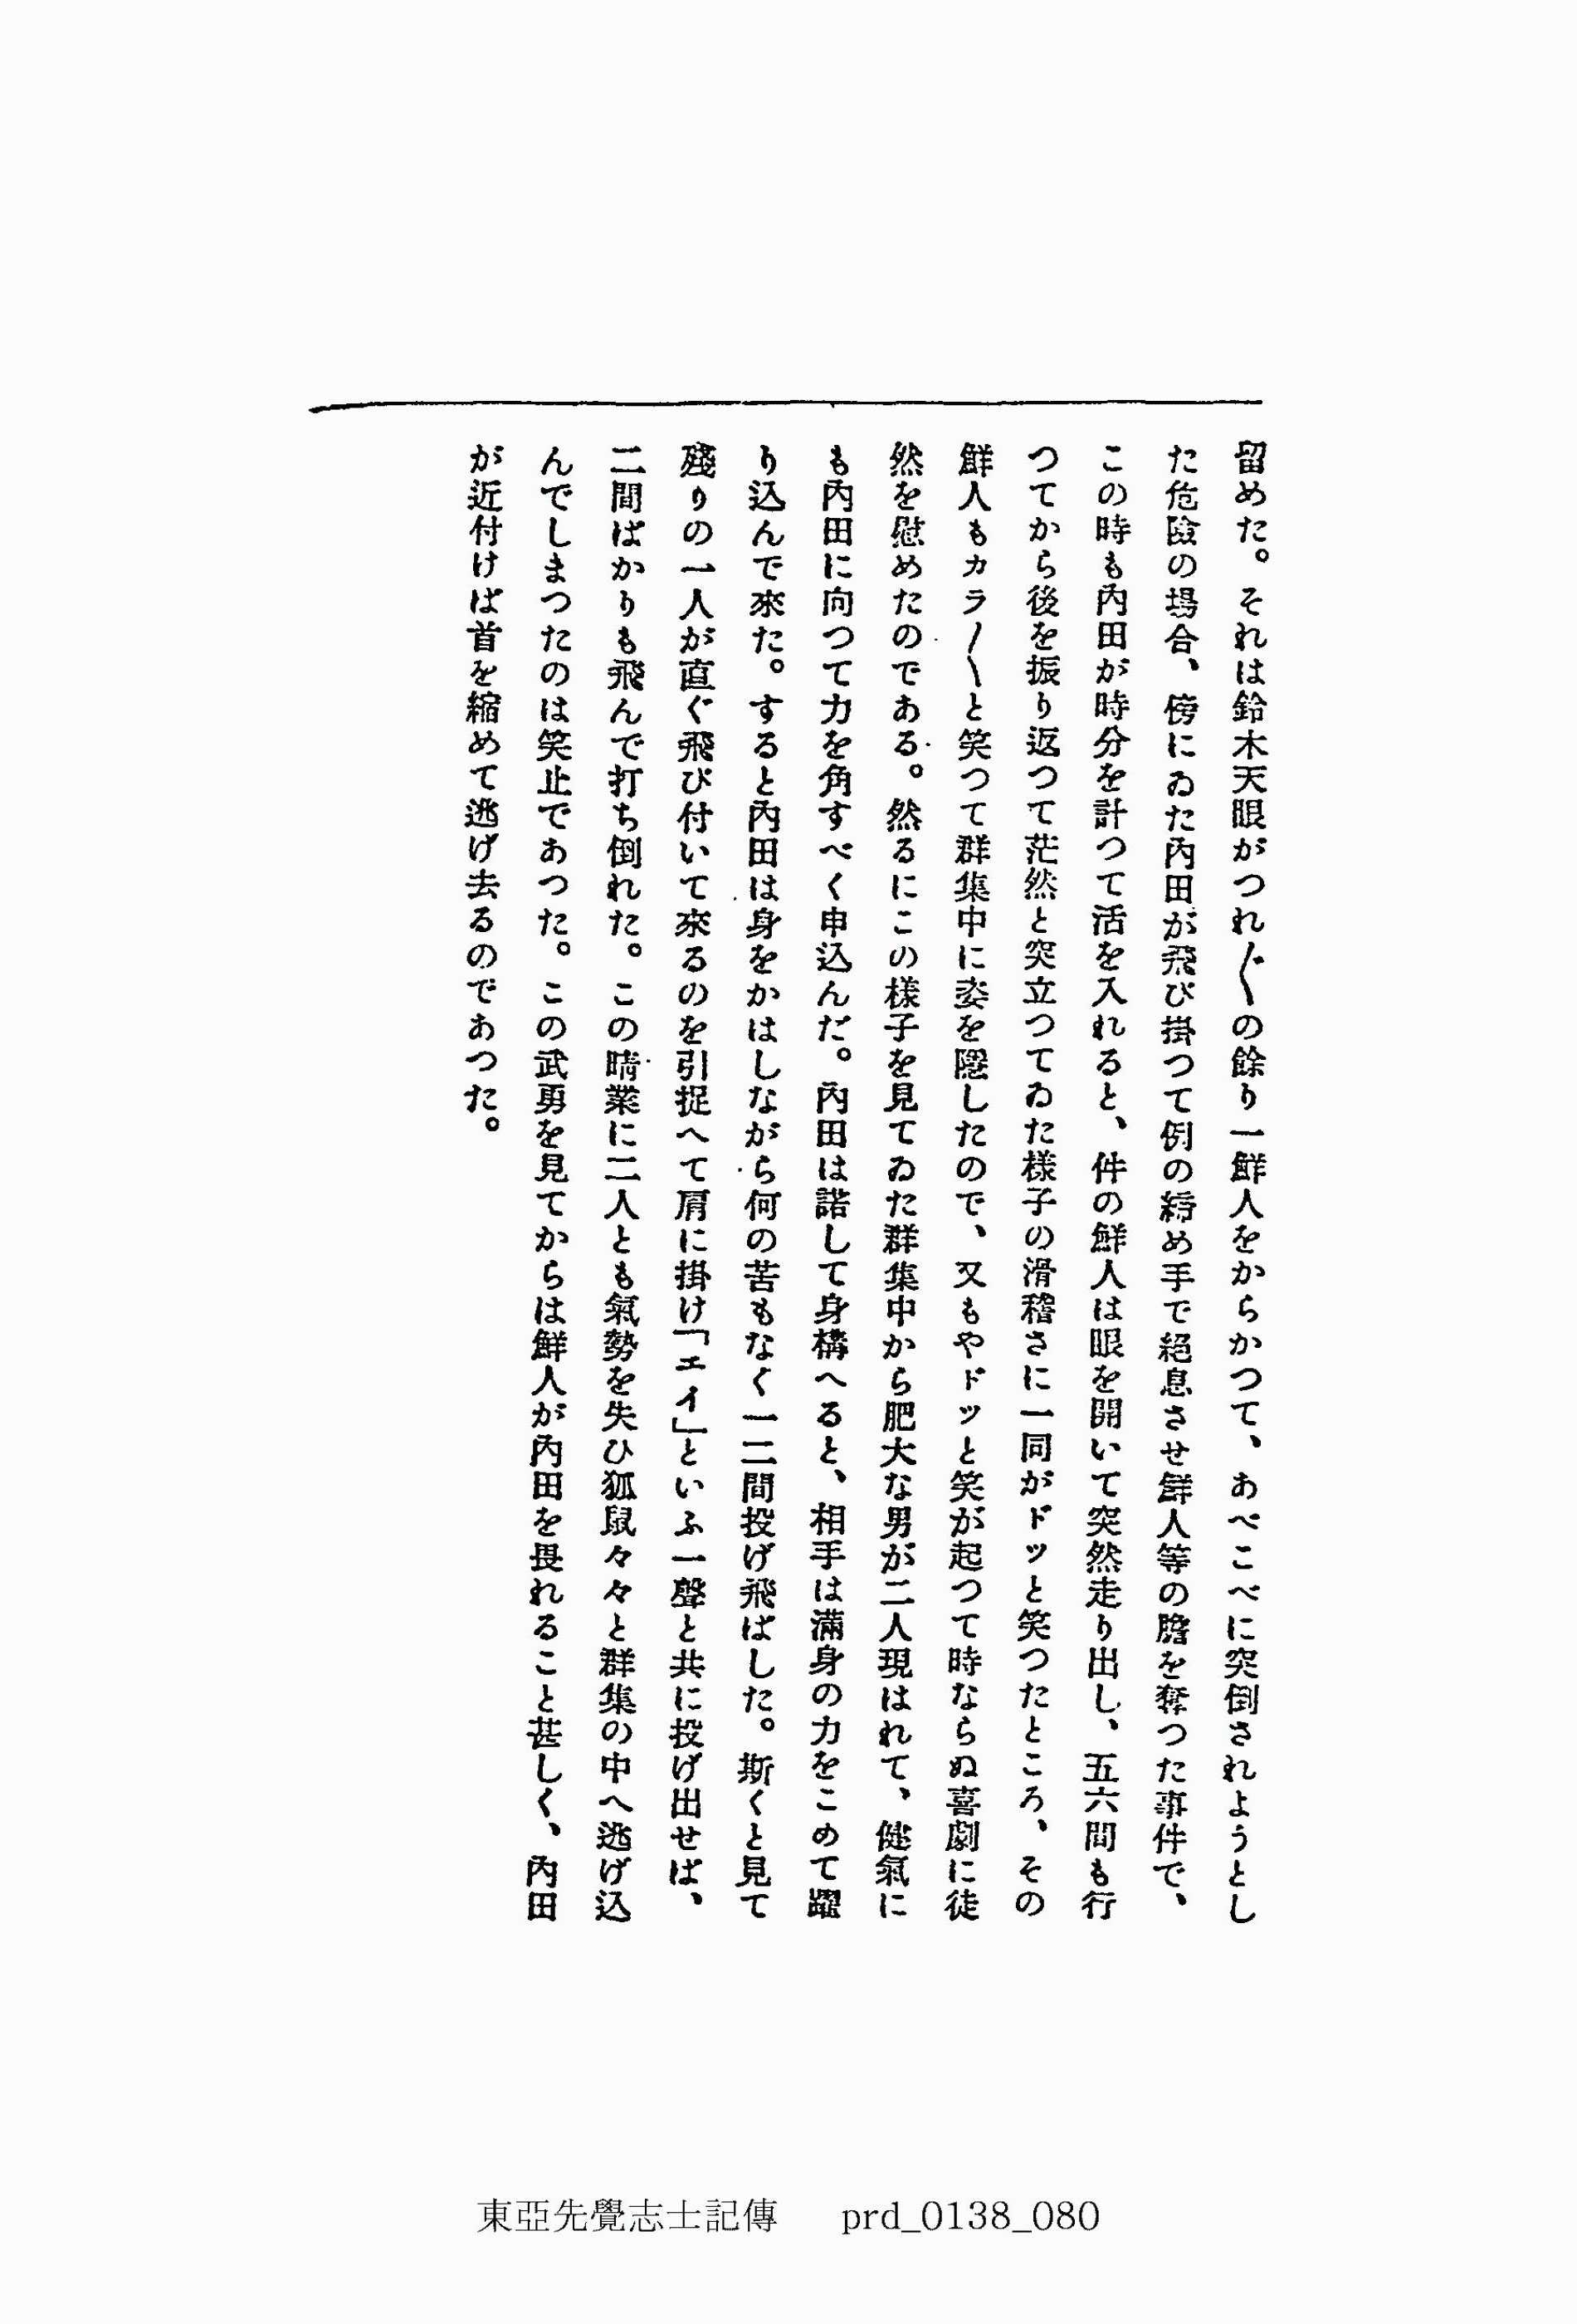 留めた。それは鈴木天眼がつれ〴〵の餘り一鮮人をからかつて、あべこべに突倒されようとし
た危險の場合、傍にゐた內田が飛び掛つて例の締め手で絕息させ鮮人等の膽を奪つた事件で、
この時も內田が時分を計つて活を入れると、件の鮮人は眼を開いて突然走り出し、五六間も行
つてから後を振り返つて茫然と突立つてゐた樣子の滑稽さに一同がドッと笑つたところ、その
鮮人もカラ〳〵と笑つて群集中に姿を隱したので、又もやドッと笑が起つて時ならぬ喜劇に徒
然を慰めたのである。然るにこの樣子を見てゐた群集中から肥大な男が二人現はれて、健氣に
も內田に向つて力を角すべく申込んだ。內田は諾して身構へると、相手は滿身の力をこめて躍
り込んで來た。すると內田は身をかはしながら何の苦もなく一二間投げ飛ばした。斯くと見て
殘りの一人が直ぐ飛び付いて來るのを引捉へて肩に掛け「エイ」といふ一聲と共に投げ出せば、
二間ばかりも飛んで打ち倒れた。この晴業に二人とも氣勢を失ひ狐鼠々々と群集の中へ逃げ込
んでしまつたのは笑止であつた。この武勇を見てからは鮮人が內田を畏れること甚しく、內田
が近付けば首を縮めて逃げ去るのであつた。
東亞先覺志士記傳 prd_0138_080